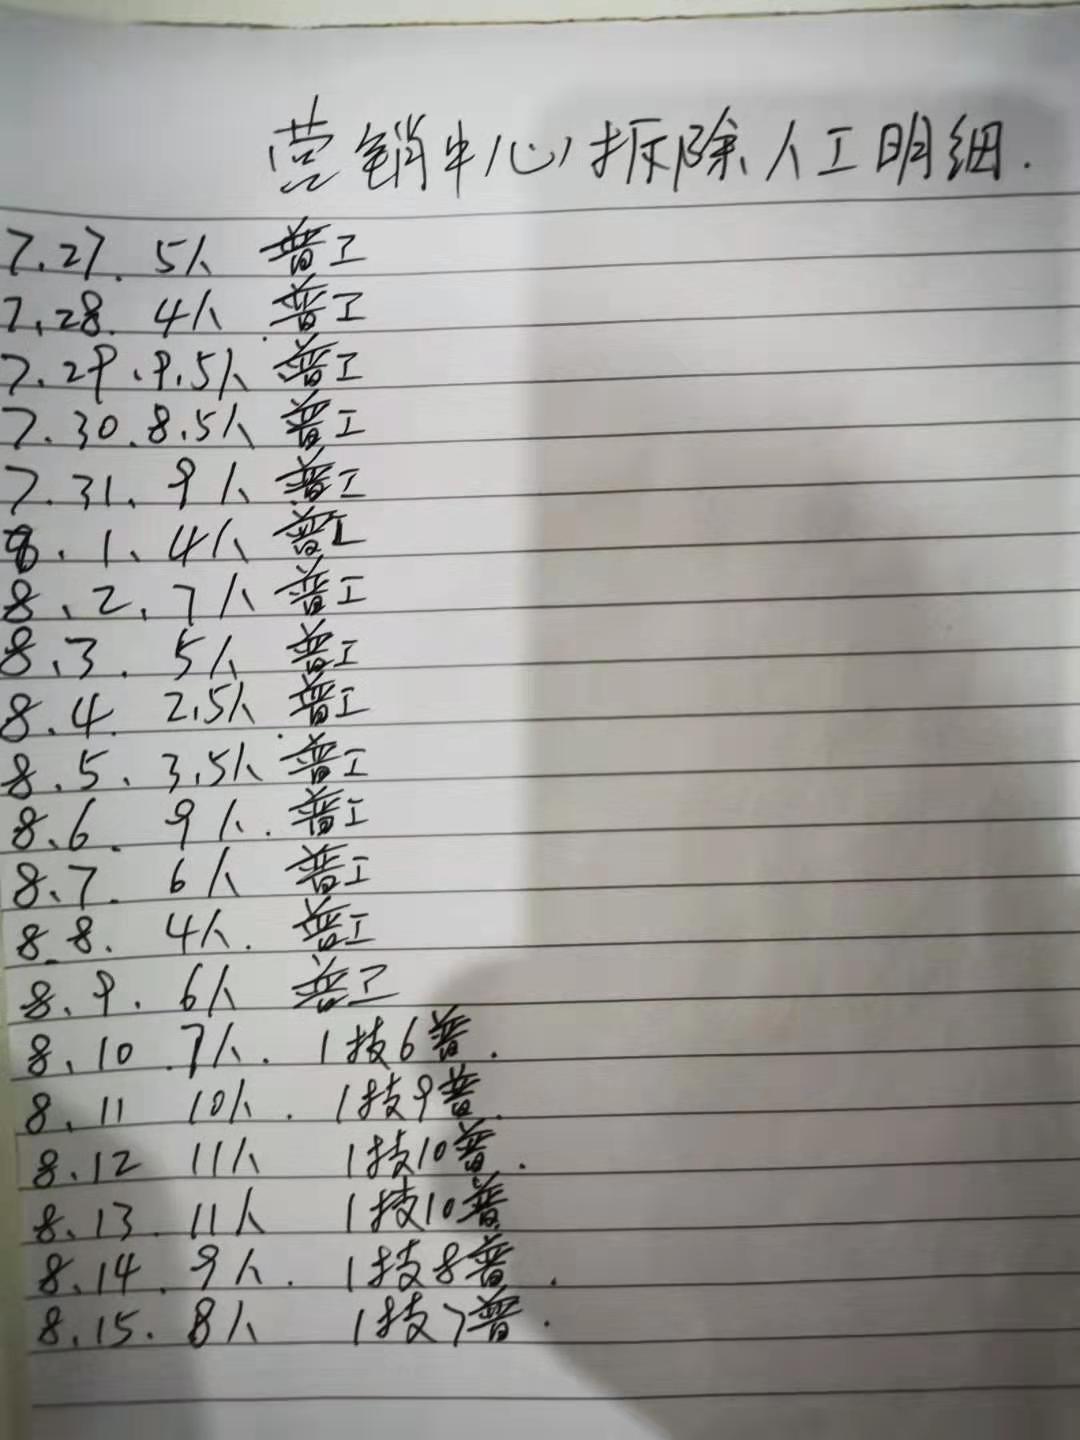 营销中心拆除人工明细.
7.27. 5人 普工
7.28. 4人 普工
7.29.9.5人 普工
7.30.8.5人 普工
7.31. 9人 普工
8.1、4人 普工
8、2、7人 普工
8.3. 5人 普工
8.4. 2.5人 普工
8.5、3.5人 普工
8.6. 9人. 普工
8.7. 6人 普工
8.8. 4人. 普工
8.9. 6人 普工
8.10.7人. 1技6普.
8.11 10人. 1技9普.
8.12 11人 1技10普.
8.13. 11人 1技10普
8.14. 9人. 1技8普.
8.15. 8人 1技7普.